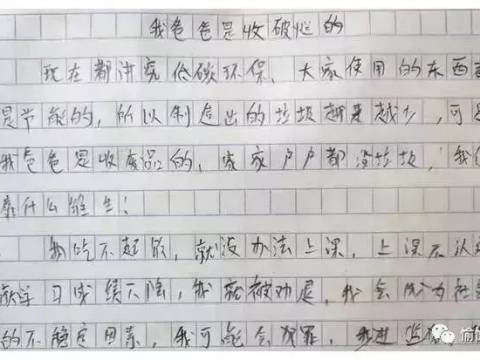 我爸爸是收破烂的
现在都讲究低碳环保，大家使用的东西都
是节能的，所以制造出的垃圾越来越少，可是
我爸爸是收废品的，家家户户都没垃圾，我们
靠什么维生！
我吃不起饭，就没办法上课，上课不认
学习成绩下降，我就被劝退，我会成为社
的不稳定因素，我可能会犯罪，我进监